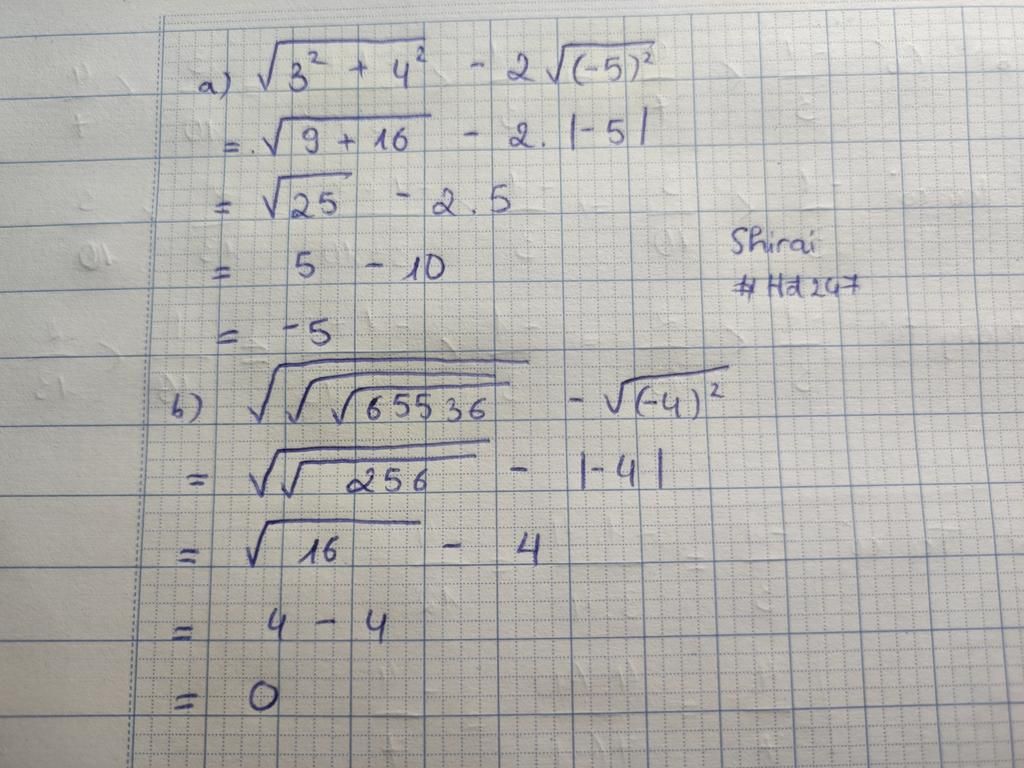 a) √(3² + 4²) - 2 √((-5)²)
= . √(9 + 16) - 2. |-5|
= √25 - 2.5
= 5 - 10
Shirai
#Hd247
= -5
b) √(√(√65536)) - √((-4)²)
= √(√256) - |-4|
= √16 - 4
= 4 - 4
= 0